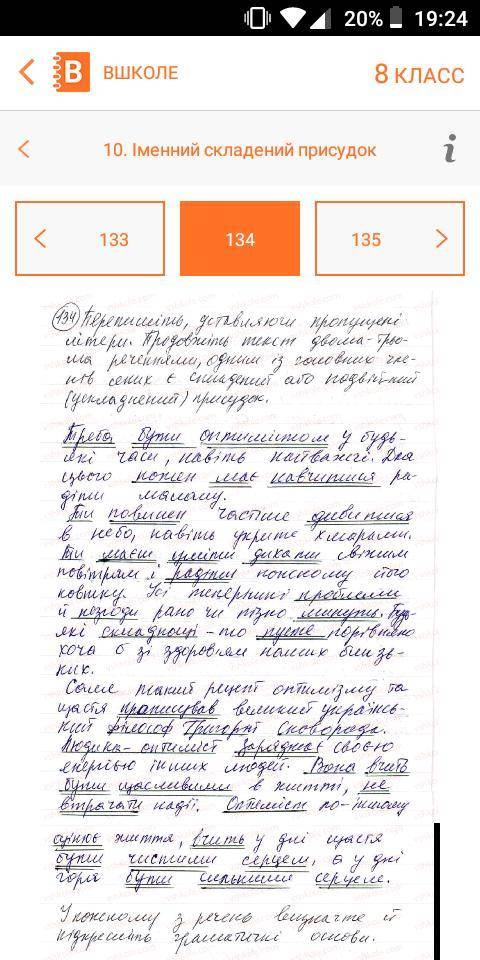 20% 19:24
ВШКОЛЕ
8 КЛАСС
10. Іменний складений присудок
133
134
135
134 Перепишіть, уставляючи пропущені
літери. Продовжіть текст двома-трьо-
ма реченнями, одним із головних чле-
нів яких є складений або подвійний
(ускладнений) присудок.
Треба бути оптимістом у будь-
які часи, навіть найважчі. Для
цього кожен має навчитися ра-
діти малому.
Ти повинен частіше дивитися
в небо, навіть укрите хмарами.
Ти маєш уміти дихати свіжим
повітрям і радіти кожному його
ковтку. Усі теперішні проблеми
й незгоди рано чи пізно минуть. Будь-
які складнощі - то пусте порівняно
хоча б зі здоров'ям наших близь-
ких.
Саме такий рецепт оптимізму та
щастя прописував великий українсь-
кий філософ Григорій Сковорода.
Людина-оптиміст заряджає своєю
енергією інших людей. Вона вчить
бути щасливими в житті, не
втрачати надії. Оптиміст по-іншому
цінює життя, вчить у дні щастя
бути чистими серцем, а у дні
горя бути сильними серцем.
У кожному з речень визначте й
підкресліть граматичні основи.